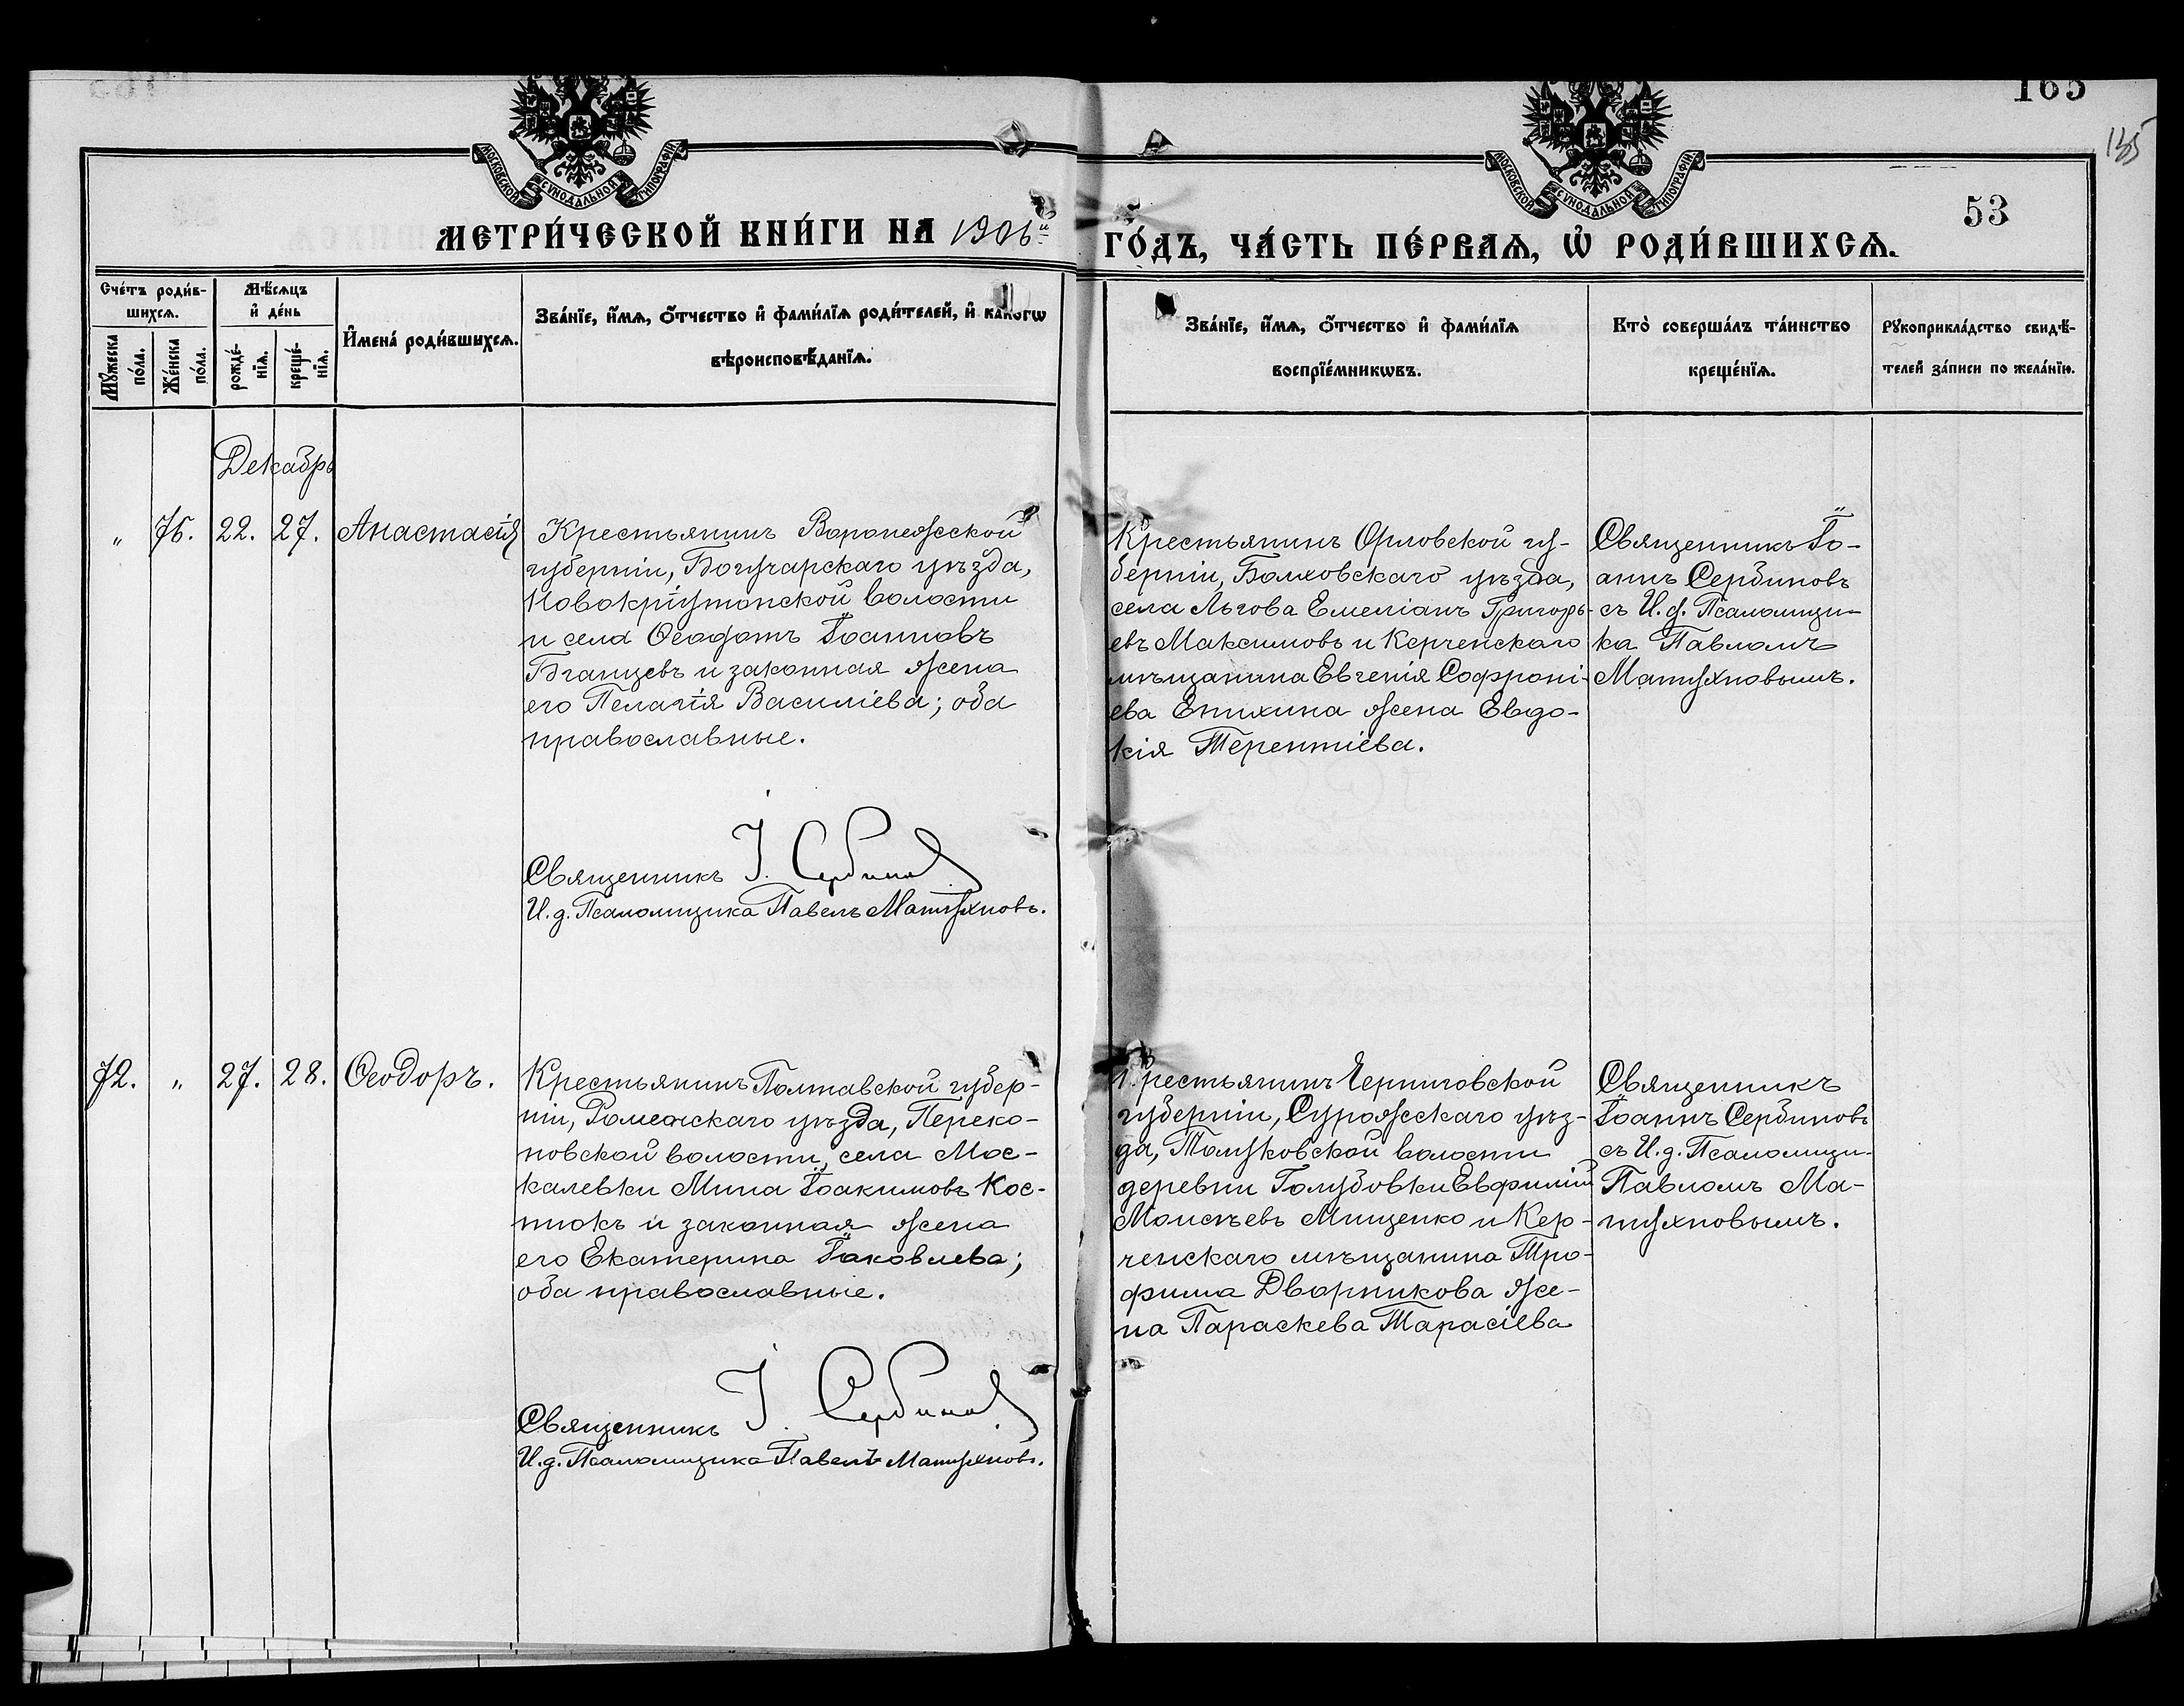 165
135
53
МОСКОВСКОЙ СѴНОДАЛЬНОЙ ТИПОГРАФІИ
МОСКОВСКОЙ СѴНОДАЛЬНОЙ ТИПОГРАФІИ
МЕТРИ́ЧЕСКОЙ КНИ́ГИ НА 1906й
ГО́ДЪ, ЧА́СТЬ ПЕ́РВАѦ, Ѡ҆ РОДИ́ВШИХСѦ.
Сче́тъ роди́в-
шихсѧ.
Мꙋ́жеска
по́ла.
Же́нска
по́ла.
Мѣ́сѧцъ
и҆ де́нь
рожде́-
нїѧ.
креще́-
нїѧ.
И҆мена̀ роди́вшихсѧ.
Зва́нїе, и҆́мѧ, ѻ҆́тчество и҆ фами́лїѧ роди́телей, и҆ како́гѡ
вѣроисповѣ́данїѧ.
Зва́нїе, и҆́мѧ, ѻ҆́тчество и҆ фами́лїѧ
воспрїе́мникѡвъ.
Кто̀ соверша́лъ та́инство
креще́нїѧ.
Рꙋкоприкла́дство свидѣ́-
телей за́писи по жела́нїю.
Декабрь
„ 76. 22. 27. Анастасія
Крестьянинъ Воронежской
губерніи, Богучарскаго уѣзда,
Новокріушанской волости
и села Ѳеодотъ Іоанновъ
Бганцевъ и законная жена
его Пелагія Василіева; оба
православные.
Священникъ І. Сербиновъ
И. д. Псаломщика Павелъ Матухновъ.
Крестьянинъ Орловской гу-
берніи, Болховскаго уѣзда,
села Льгова Емеліанъ Григорь-
евъ Максимовъ и Керченскаго
мѣщанина Евгенія Софроні-
ева Енихина жена Евдо-
кія Терентіева.
Священникъ Іо-
аннъ Сербиновъ
съ И. д. Псаломщи-
ка Павломъ
Матухновымъ.
72. „ 27. 28. Ѳеодоръ.
Крестьянинъ Полтавской губер-
ніи, Роменскаго уѣзда, Переко-
повской волости, села Мос-
калевки Мина Іоакимовъ Кос-
тюкъ и законная жена
его Екатерина Іаковлева;
оба православные.
Священникъ І. Сербиновъ
И. д. Псаломщика Павелъ Матухновъ.
Крестьянинъ Черниговской
губерніи, Суражскаго уѣз-
да, волости
деревни Голубовки Евфимій
Моисѣевъ Мищенко и Кер-
ченскаго мѣщанина Тро-
фима Дворникова же-
на Параскева Тарасіева
Священникъ
Іоаннъ Сербиновъ
съ И. д. Псаломщи-
Павломъ Ма-
тухновымъ.